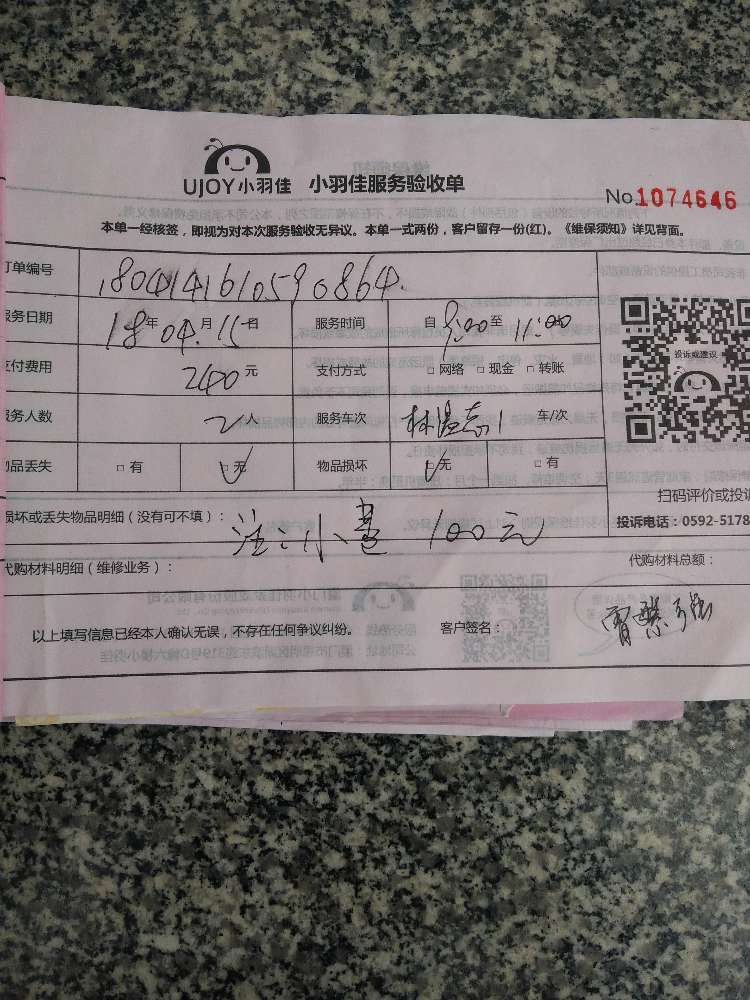 UJOY小羽佳 小羽佳服务验收单
No 1074646
本单一经核签，即视为对本次服务验收无异议。本单一式两份，客户留存一份(红)。《维保须知》详见背面。
订单编号 1804141610590864
服务日期 18年04月15日 服务时间 自9:00至11:00
支付费用 240元 支付方式 □网络 □现金 □转账
服务人数 2人 服务车次 车/次
物品丢失 □有 □无 物品损坏 □无 □有
投诉或建议
扫码评价或投诉
投诉电话：0592-5178
损坏或丢失物品明细（没有可不填）： 100元
代购材料明细（维修业务）： 代购材料总额：
以上填写信息已经本人确认无误，不存在任何争议纠纷。 客户签名：